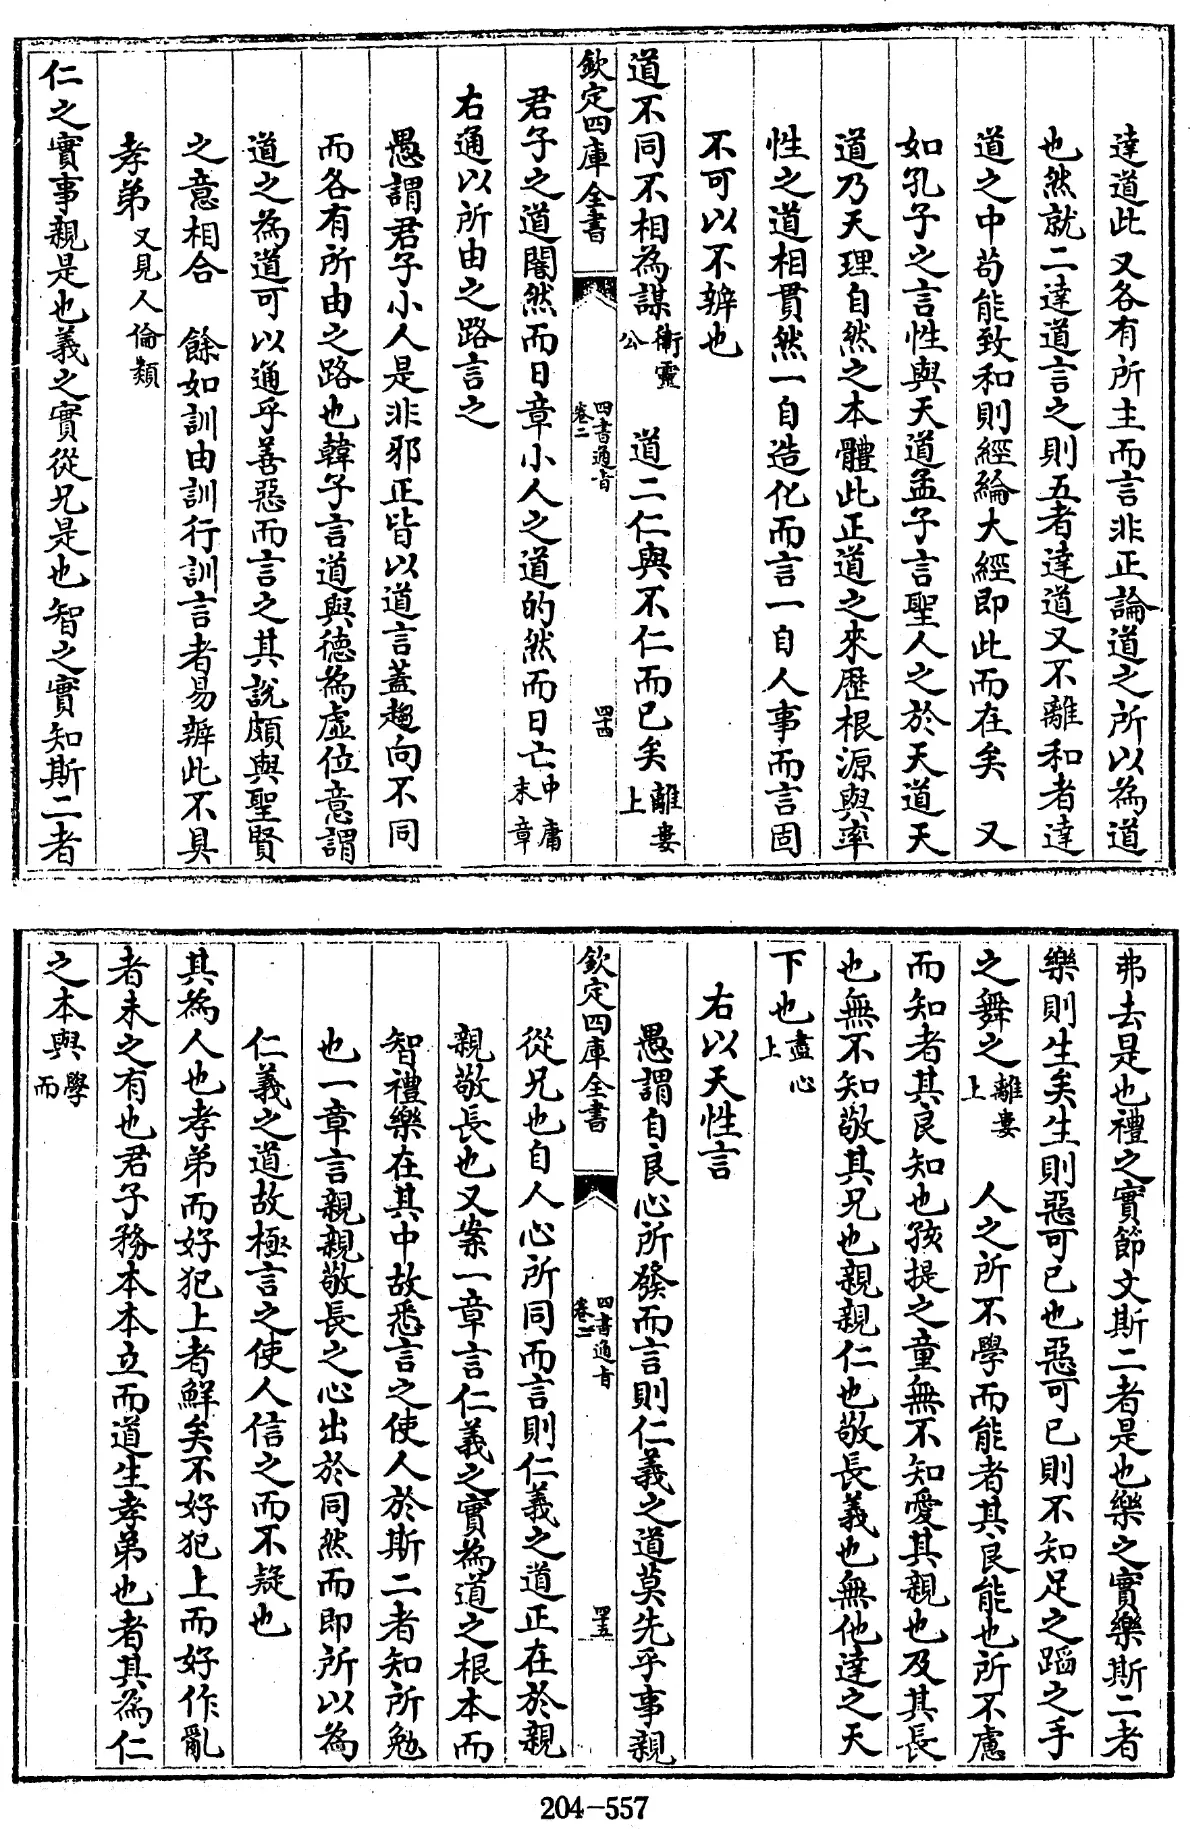 達道此又各有所主而言非正論道之所以為道
也然就二達道言之則五者達道又不離和者達
道之中苟能致和則經綸大經即此而在矣　又
如孔子之言性與天道孟子言聖人之於天道天
道乃天理自然之本體此正道之來歷根源與率
性之道相貫然一自造化而言一自人事而言固
不可以不辨也
道不同不相為謀衛靈公　道二仁與不仁而已矣離婁上
欽定四庫全書　四書通旨卷二　四十四
君子之道闇然而日章小人之道的然而日亡中庸末章
右通以所由之路言之
愚謂君子小人是非邪正皆以道言蓋趨向不同
而各有所由之路也韓子言道與德為虛位意謂
道之為道可以通乎善惡而言之其說頗與聖賢
之意相合　餘如訓由訓行訓言者易辨此不具
孝弟又見人倫類
仁之實事親是也義之實從兄是也智之實知斯二者
弗去是也禮之實節文斯二者是也樂之實樂斯二者
樂則生矣生則惡可已也惡可已則不知足之蹈之手
之舞之離婁上　人之所不學而能者其良能也所不慮
而知者其良知也孩提之童無不知愛其親也及其長
也無不知敬其兄也親親仁也敬長義也無他達之天
下也盡心上
右以天性言
愚謂自良心所發而言則仁義之道莫先乎事親
欽定四庫全書　四書通旨卷二　四十五
從兄也自人心所同而言則仁義之道正在於親
親敬長也又案一章言仁義之實為道之根本而
智禮樂在其中故悉言之使人於斯二者知所勉
也一章言親親敬長之心出於同然而即所以為
仁義之道故極言之使人信之而不疑也
其為人也孝弟而好犯上者鮮矣不好犯上而好作亂
者未之有也君子務本本立而道生孝弟也者其為仁
之本與學而
204-557